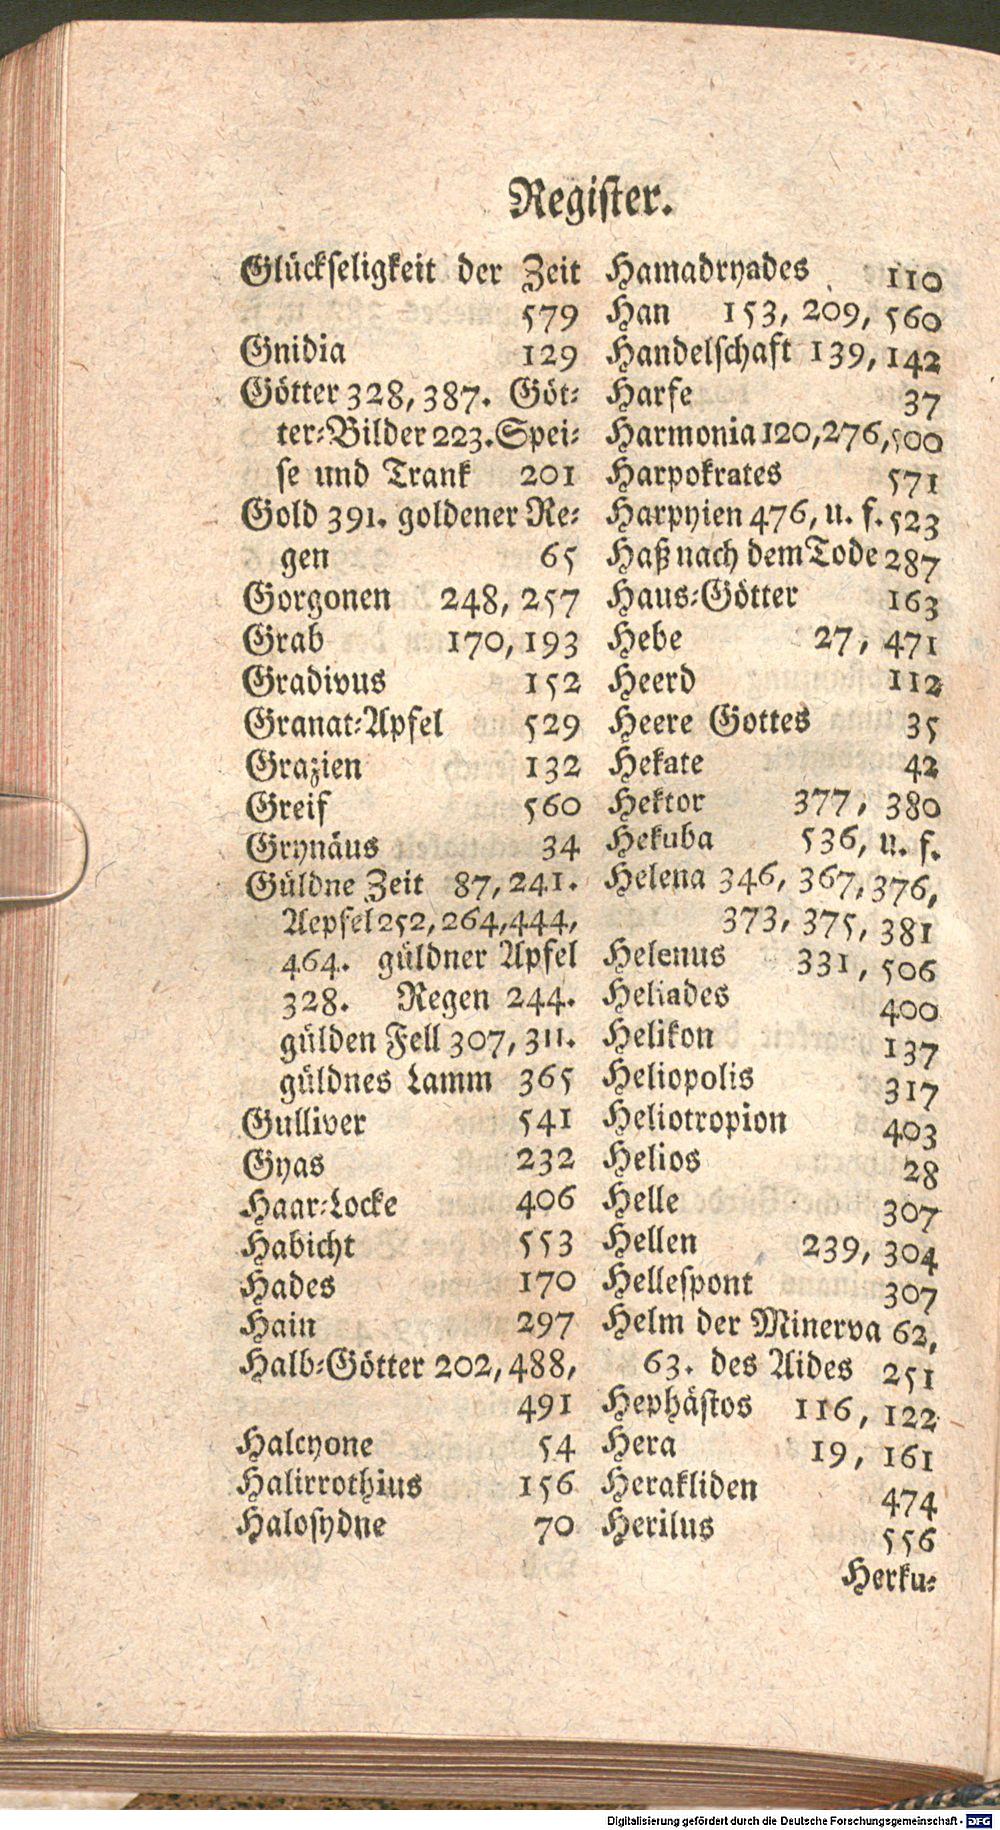 Register.
Glückseligkeit der Zeit
579
Gnidia 129
Götter 328, 387. Göt-
ter-Bilder 223. Spei-
se und Trank 201
Gold 391. goldener Re-
gen 65
Gorgonen 248, 257
Grab 170, 193
Gradivus 152
Granat-Apfel 529
Grazien 132
Greif 560
Grynäus 34
Güldne Zeit 87, 241.
Aepfel 252, 264, 444,
464. güldner Apfel
328. Regen 244.
gülden Fell 307, 311.
güldnes Lamm 365
Gulliver 541
Gyas 232
Haar-Locke 406
Habicht 553
Hades 170
Hain 297
Halb-Götter 202, 488,
491
Halcyone 54
Halirrothius 156
Halosydne 70
Hamadryades 110
Han 153, 209, 560
Handelschaft 139, 142
Harfe 37
Harmonia 120, 276, 500
Harpokrates 571
Harpyien 476, u. f. 523
Haß nach dem Tode 287
Haus-Götter 163
Hebe 27, 471
Heerd 112
Heere Gottes 35
Hekate 42
Hektor 377, 380
Hekuba 536, u. f.
Helena 346, 367, 376,
373, 375, 381
Helenus 331, 506
Heliades 400
Helikon 137
Heliopolis 317
Heliotropion 403
Helios 28
Helle 307
Hellen 239, 304
Hellespont 307
Helm der Minerva 62,
63. des Aides 251
Hephästos 116, 122
Hera 19, 161
Herakliden 474
Herilus 556
Herku-
Digitalisierung gefördert durch die Deutsche Forschungsgemeinschaft - DFG